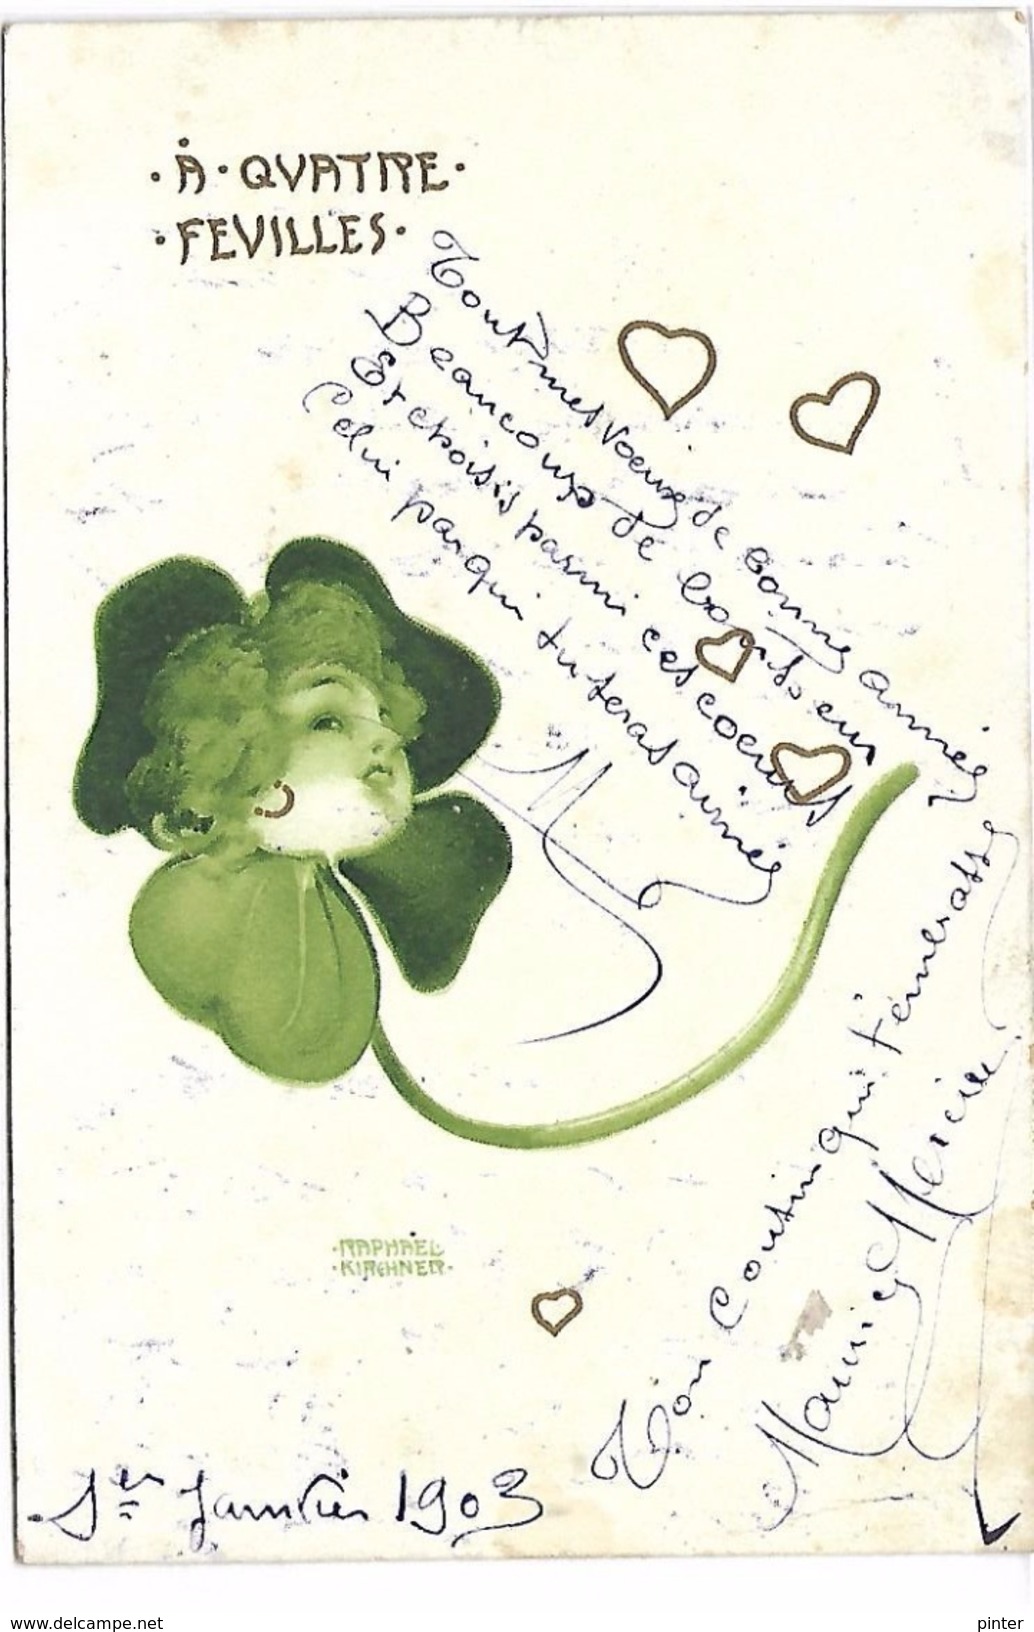 ·À·QVATRE·
·FEVILLES·
Tout mes voeux de bonne année
Beaucoup de bonheur
Et choisis parmi ces coeurs
Celui par qui tu seras aimée
M
Ton cousin qui t'embrasse
Maurice Mercier
·RAPHAEL·
·KIRCHNER·
1er Janvier 1903
www.delcampe.net
pinter